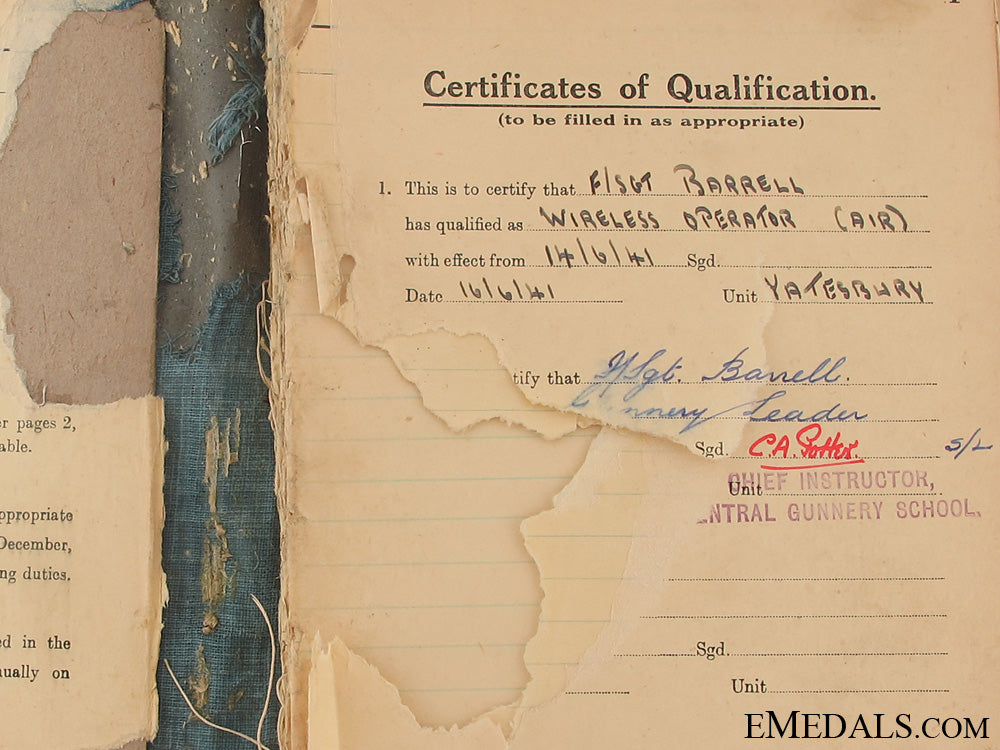 er pages 2,
able.
ppropriate
December,
ng duties.
ed in the
nually on
Certificates of Qualification.
(to be filled in as appropriate)
1. This is to certify that F/SGT BARRELL
has qualified as WIRELESS OPERATOR (AIR)
with effect from 14/6/41 Sgd.
Date 16/6/41 Unit YATESBURY
tify that F/Sgt. Barrell.
unnery Leader
Sgd. C.A. S/L
Unit CHIEF INSTRUCTOR,
ENTRAL GUNNERY SCHOOL.
Sgd.
Unit
EMEDALS.COM